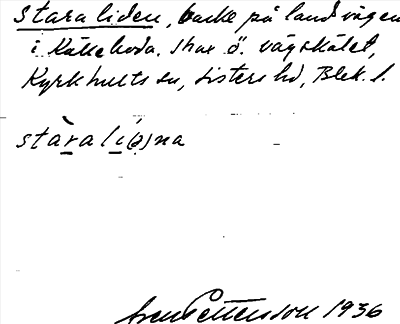 Stara liden, backe på landsvägen
i Kåkeboda. Strax ö. vägskälet,
Kyrkhults sn, Listers hd, Blek. l.
stàra li(ə)na
Sven Pettersson 1936